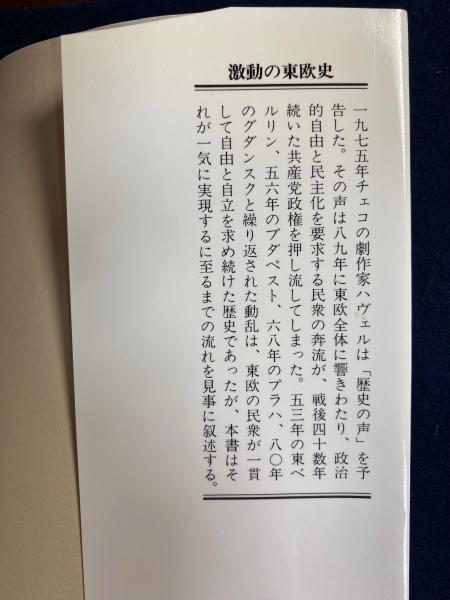 激動の東欧史
一九七五年チェコの劇作家ハヴェルは「歴史の声」を予
告した。その声は八九年に東欧全体に響きわたり、政治
的自由と民主化を要求する民衆の奔流が、戦後四十数年
続いた共産党政権を押し流してしまった。五三年の東ベ
ルリン、五六年のブダペスト、六八年のプラハ、八〇年
のグダンスクと繰り返された動乱は、東欧の民衆が一貫
して自由と自立を求め続けた歴史であったが、本書はそ
れが一気に実現するに至るまでの流れを見事に叙述する。